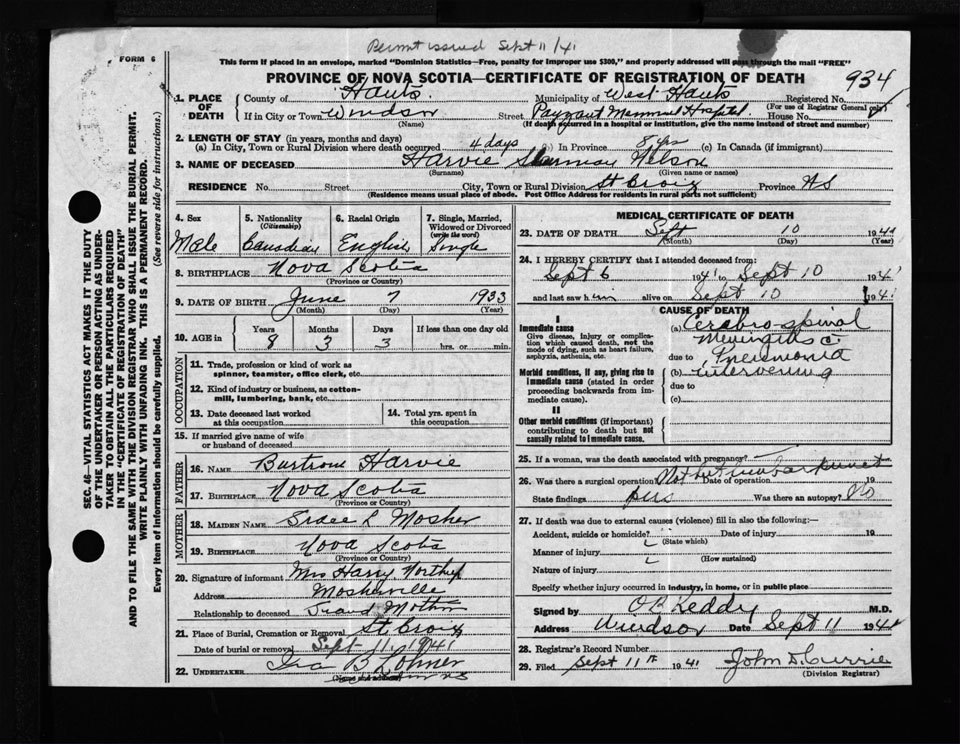 Permit issued Sept 11/41
FORM 6
This form if placed in an envelope, marked "Dominion Statistics—Free, penalty for improper use $300," and properly addressed will pass through the mail "FREE"
PROVINCE OF NOVA SCOTIA—CERTIFICATE OF REGISTRATION OF DEATH
934
1. PLACE OF DEATH County of Hants Municipality of West Hants Registered No.
(For use of Registrar General only)
If in City or Town Windsor Street Payzant Memorial Hospital House No.
(Name) (If death occurred in a hospital or institution, give the name instead of street and number)
2. LENGTH OF STAY (in years, months and days)
(a) In City, Town or Rural Division where death occurred 4 days (b) In Province 8 yrs (c) In Canada (if immigrant)
3. NAME OF DECEASED Harvie Nelson
(Surname) (Given name or names)
RESIDENCE No. Street City, Town or Rural Division St Croix Province NS
(Residence means usual place of abode. Post Office Address for residents in rural parts not sufficient)
4. Sex Male
5. Nationality (Citizenship) Canadian
6. Racial Origin English
7. Single, Married, Widowed or Divorced (write the word) Single
8. BIRTHPLACE Nova Scotia
(Province or Country)
9. DATE OF BIRTH June 7 1933
(Month) (Day) (Year)
10. AGE in Years Months Days If less than one day old
8 3 3 hrs. or min.
OCCUPATION
11. Trade, profession or kind of work as spinner, teamster, office clerk, etc.
12. Kind of industry or business, as cotton-mill, lumbering, bank, etc.
13. Date deceased last worked at this occupation
14. Total yrs. spent in this occupation
15. If married give name of wife or husband of deceased
FATHER
16. Name Harvie
17. Birthplace Nova Scotia
(Province or Country)
MOTHER
18. Maiden Name L Mosher
19. Birthplace Nova Scotia
(Province or Country)
20. Signature of informant Mrs Harry
Address Mosherville
Relationship to deceased Grand Mother
21. Place of Burial, Cremation or Removal St Croix
Date of burial or removal Sept 11, 1941
22. UNDERTAKER Ira B
MEDICAL CERTIFICATE OF DEATH
23. DATE OF DEATH Sept 10 1941
(Month) (Day) (Year)
24. I HEREBY CERTIFY that I attended deceased from:
Sept 6 1941 to Sept 10 1941
and last saw him alive on Sept 10 1941
CAUSE OF DEATH
I
Immediate cause
Give disease, injury or complication which caused death, not the mode of dying, such as heart failure, asphyxia, asthenia, etc.
(a) Cerebro spinal
Meningitis c̄
due to Pneumonia
Morbid conditions, if any, giving rise to immediate cause (stated in order proceeding backwards from immediate cause).
(b) intervening
due to
(c)
II
Other morbid conditions (if important) contributing to death but not causally related to immediate cause.
25. If a woman, was the death associated with pregnancy?
26. Was there a surgical operation? Not but lumbar punct Date of operation 19
State findings pus Was there an autopsy? No
27. If death was due to external causes (violence) fill in also the following:—
Accident, suicide or homicide? Date of injury 19
(State which)
Manner of injury
(How sustained)
Nature of injury
Specify whether injury occurred in industry, in home, or in public place
Signed by Reddy M.D.
Address Windsor Date Sept 11 1941
28. Registrar's Record Number
29. Filed Sept 11th 1941 John D Currie
(Division Registrar)
SEC. 46—VITAL STATISTICS ACT MAKES IT THE DUTY
OF THE UNDERTAKER OR PERSON ACTING AS UNDER-
TAKER TO OBTAIN ALL THE PARTICULARS REQUIRED
IN THE "CERTIFICATE OF REGISTRATION OF DEATH"
AND TO FILE THE SAME WITH THE DIVISION REGISTRAR WHO SHALL ISSUE THE BURIAL PERMIT.
WRITE PLAINLY WITH UNFADING INK. THIS IS A PERMANENT RECORD.
Every item of information should be carefully supplied. (See reverse side for instructions.)